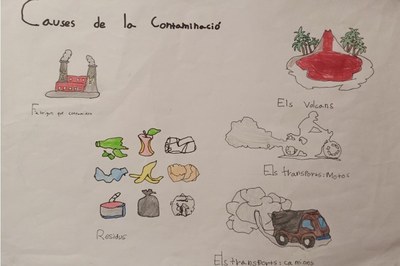 Causes de la Contaminació
Els Volcans
Fabriques que contaminen
Els transports: Motos
Residus
Els transports: camions